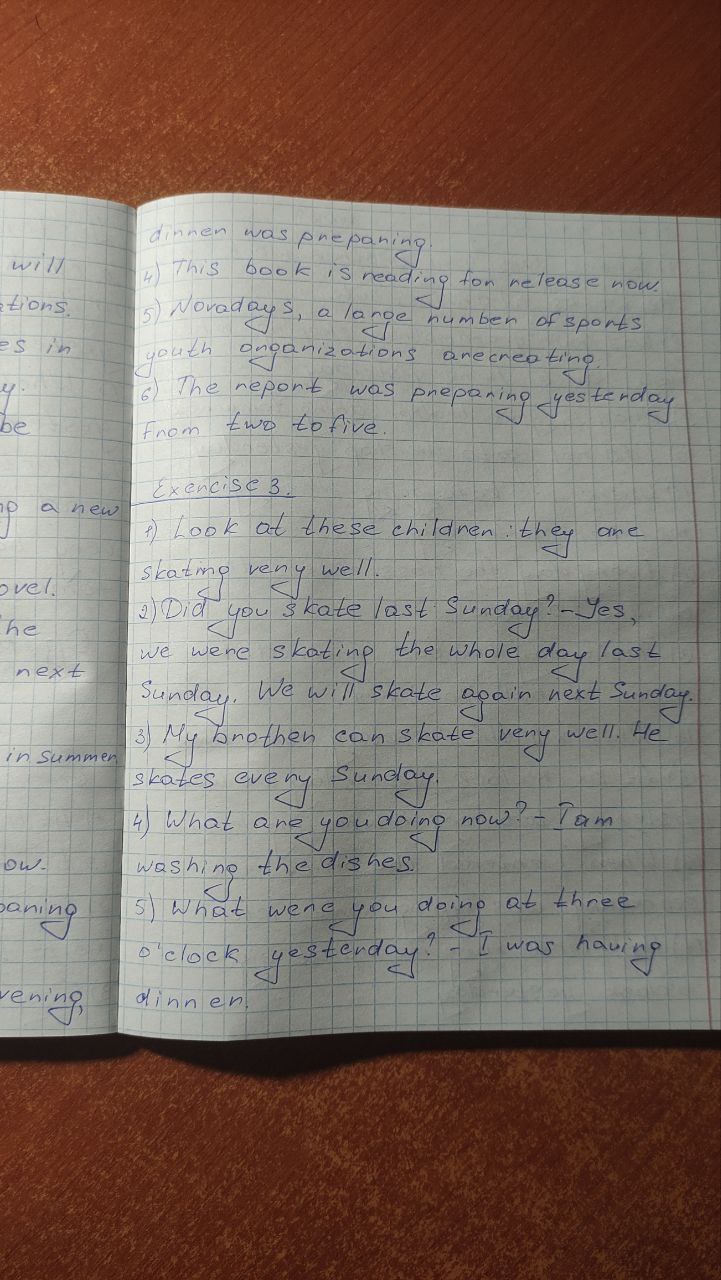 will
ations.
es in
y.
be
ng a new
ovel.
he
next
in summer
ow.
paring
vening,
dinner was preparing.
4) This book is reading for release now
5) Novadays, a large number of sports
youth organizations are creating.
6) The report was preparing yesterday
From two to five.
Exercise 3.
1) Look at these children: they are
skating very well.
2) Did you skate last Sunday? - Yes,
we were skating the whole day last
Sunday. We will skate again next Sunday.
3) My brother can skate very well. He
skates every Sunday.
4) What are you doing now? - I am
washing the dishes.
5) What were you doing at three
o'clock yesterday? - I was having
dinner.